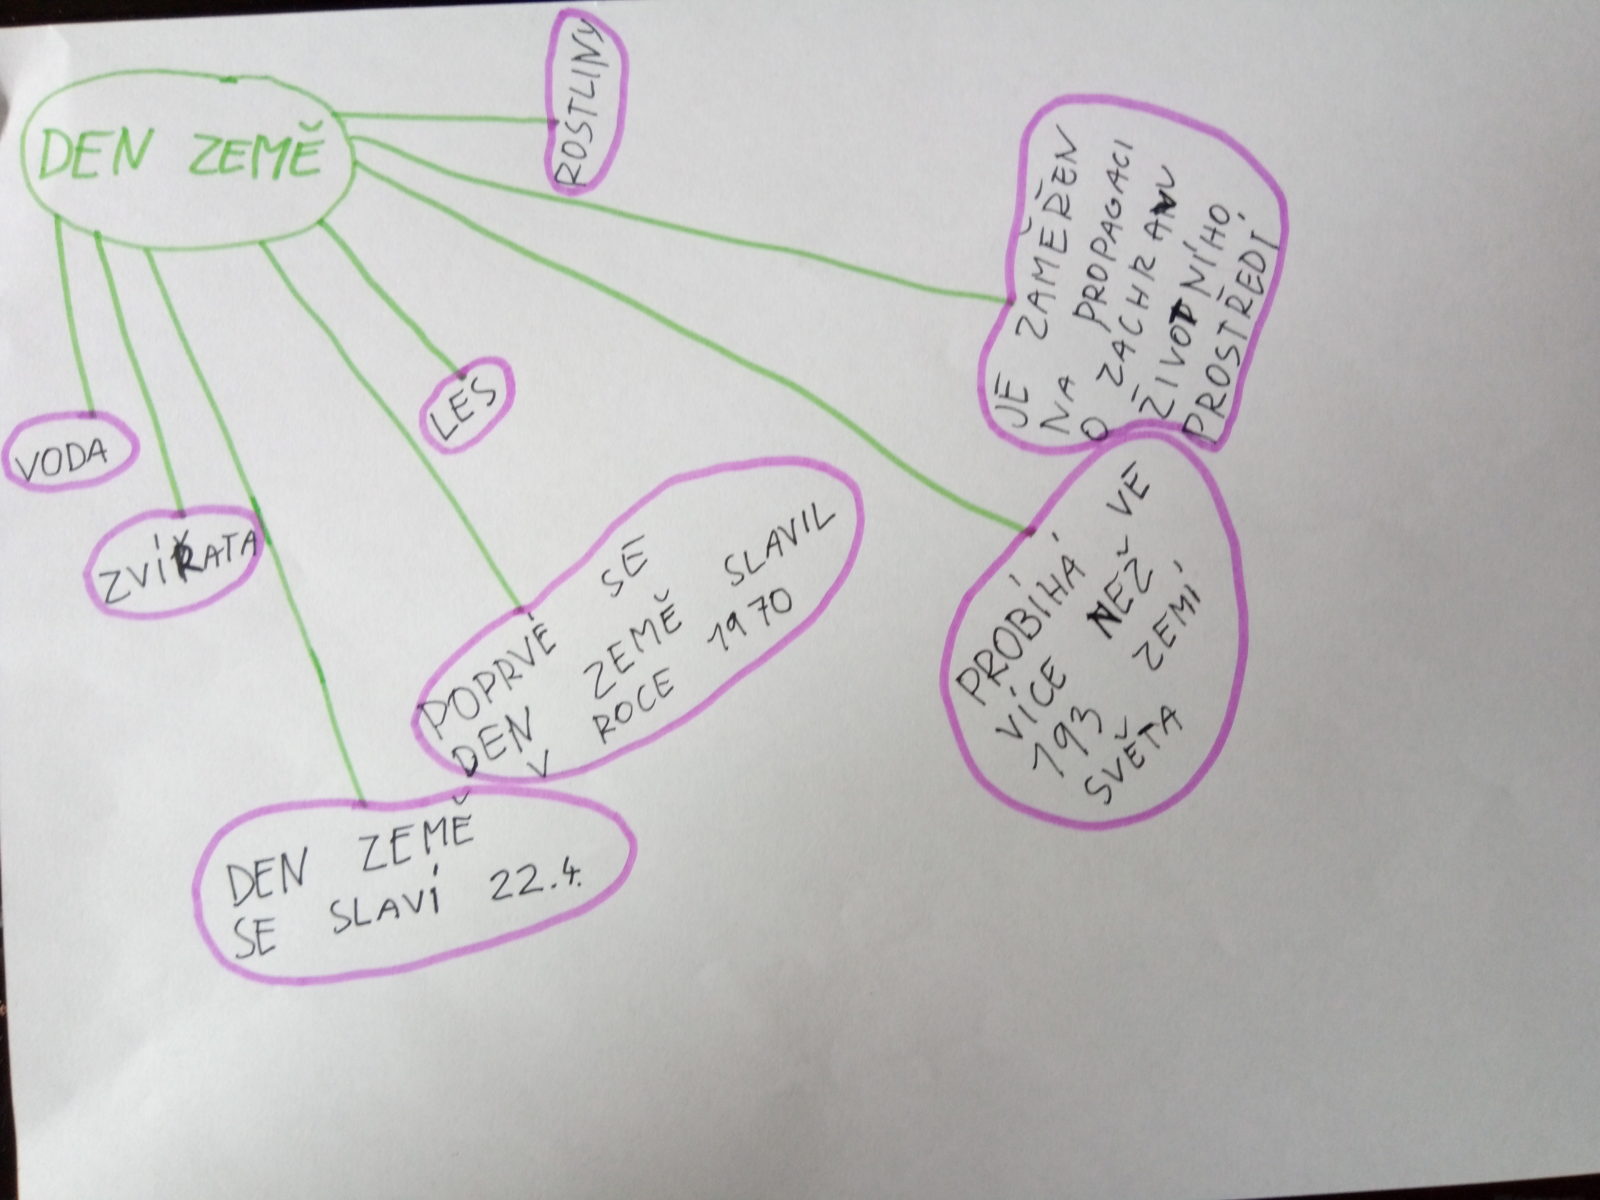 DEN ZEMĚ
ROSTLINY
JE ZAMĚŘEN
NA PROPAGACI
O ZACHRANU
ŽIVOTNÍHO
PROSTŘEDÍ
PROBÍHÁ VE
VÍCE NEŽ
193 ZEMÍ
SVĚTA
LES
POPRVÉ SE
DEN ZEMĚ SLAVIL
V ROCE 1970
DEN ZEMĚ
SE SLAVÍ 22.4.
ZVÍŘATA
VODA